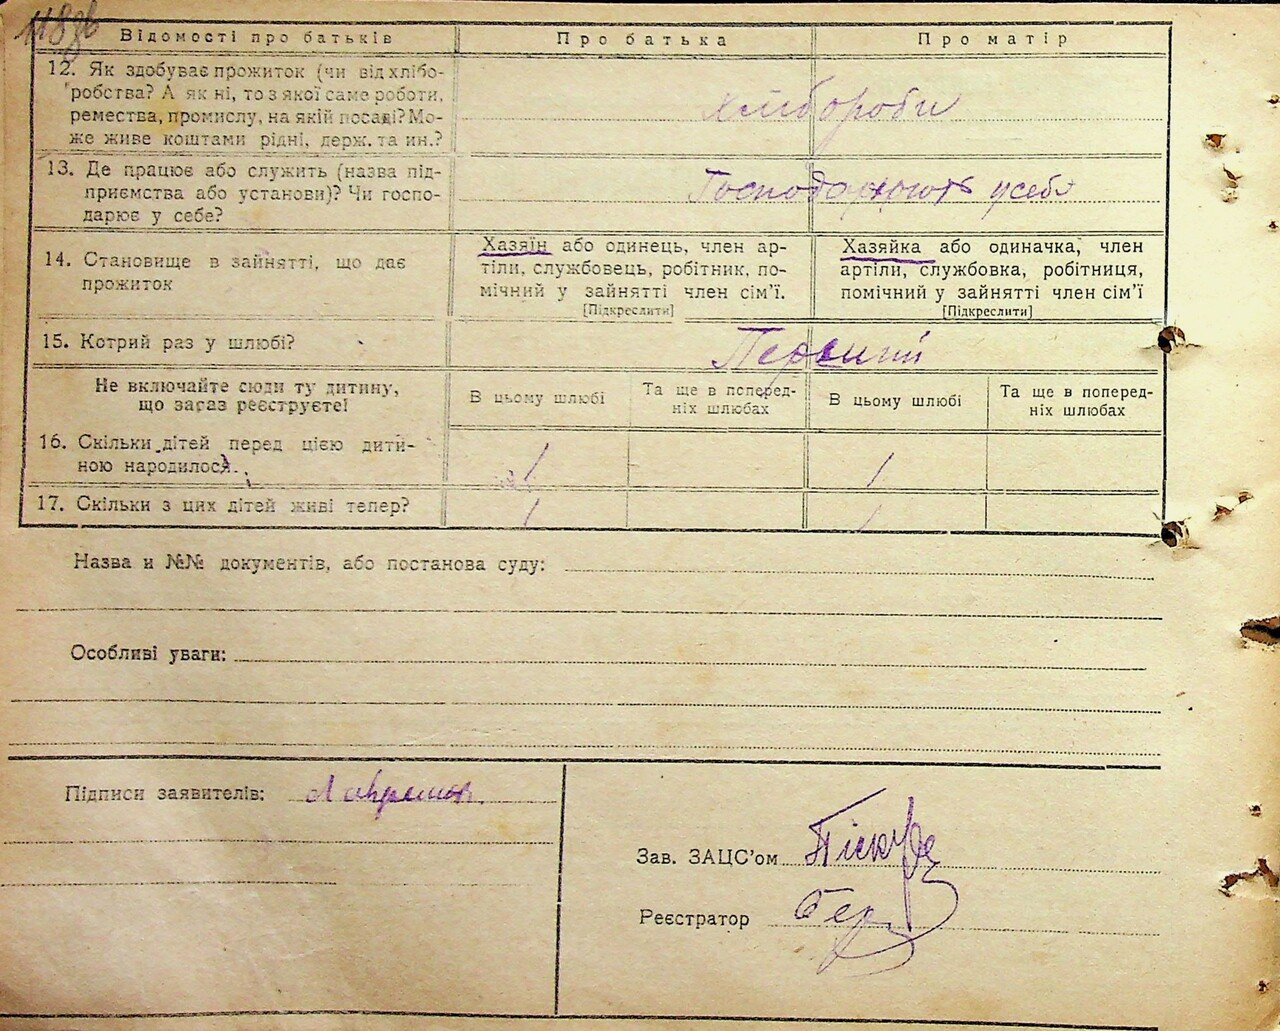 118 зв
Відомості про батьків
Про батька
Про матір
12. Як здобуває прожиток (чи від хлібо-
робства? А як ні, то з якої саме роботи,
ремества, промислу, на якій посаді? Мо-
же живе коштами рідні, держ. та ин.?
Хлібороби
13. Де працює або служить (назва під-
приємства або установи)? Чи госпо-
дарює у себе?
Господарюють у себе
14. Становище в зайнятті, що дає
прожиток
Хазяїн або одинець, член ар-
тіли, службовець, робітник, по-
мічний у зайнятті член сім’ї.
[Підкреслити]
Хазяйка або одиначка, член
артіли, службовка, робітниця,
помічний у зайнятті член сім’ї
[Підкреслити]
15. Котрий раз у шлюбі?
Первий
Не включайте сюди ту дитину,
що зараз реєструєте!
В цьому шлюбі
Та ще в поперед-
ніх шлюбах
В цьому шлюбі
Та ще в поперед-
ніх шлюбах
16. Скільки дітей перед цією дити-
ною народилося.
1
1
17. Скільки з цих дітей живі тепер?
1
1
Назва и №№ документів, або постанова суду:
Особливі уваги:
Підписи заявителів:
Зав. ЗАЦС’ом
Реєстратор